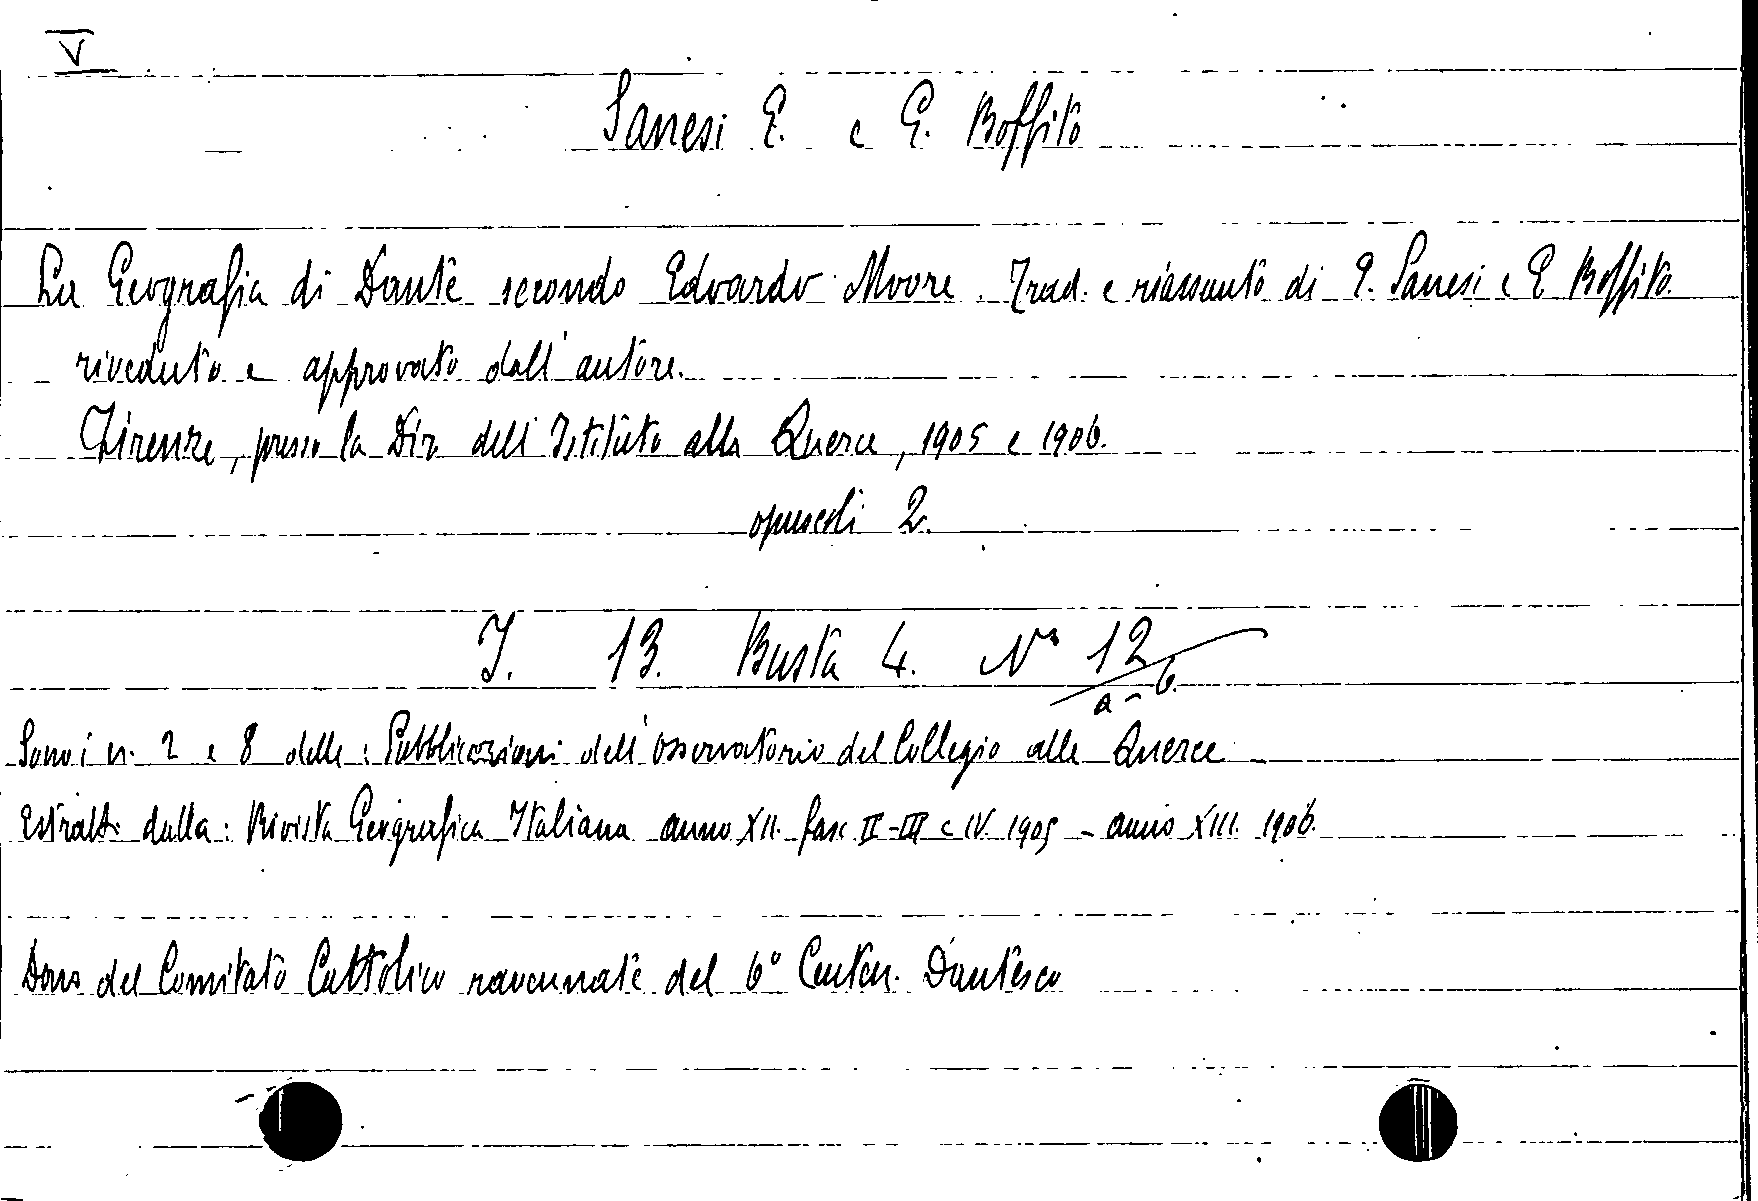 V
Sanesi E. e G. Boffito
La Geografia di Dante secondo Edoardo Moore. Trad. e riassunto di E. Sanesi e G Boffito.
riveduto e approvato dall'autore.
Firenze, presso la Dir. dell'Istituto alla Querce, 1905 e 1906.
opuscoli 2.
I. 13. Busta 4. N° 12
a-b.
Sono i n. 2 e 8 delle: Pubblicazioni dell'osservatorio del Collegio alle Querce
Estratti dalla: Rivista Geografica Italiana anno XII. fasc II-III e IV. 1905 - anno XIII. 1906.
Dono del Comitato Cattolico ravennate del 6° Centen. Dantesco